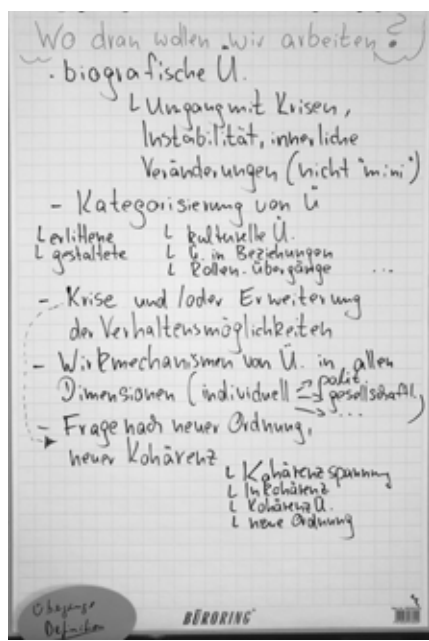 Wo dran wollen wir arbeiten?
· biografische Ü.
L Umgang mit Krisen,
Instabilität, innerliche
Veränderungen (nicht "mini")
- Kategorisierung von Ü
L erlittene
L gestaltete
L kulturelle Ü.
L Ü. in Beziehungen
L Rollen-übergänge ...
- Krise und/oder Erweiterung
der Verhaltensmöglichkeiten
- Wirkmechanismen von Ü. in allen
Dimensionen (individuell → polit.
→ gesellschaftl.
→ ... )
- Frage nach neuer Ordnung,
neuer Kohärenz
L Kohärenzspannung
L Inkohärenz
L Kohärenz Ü.
L neue Ordnung
Übergänge
Definition
BÜRORING